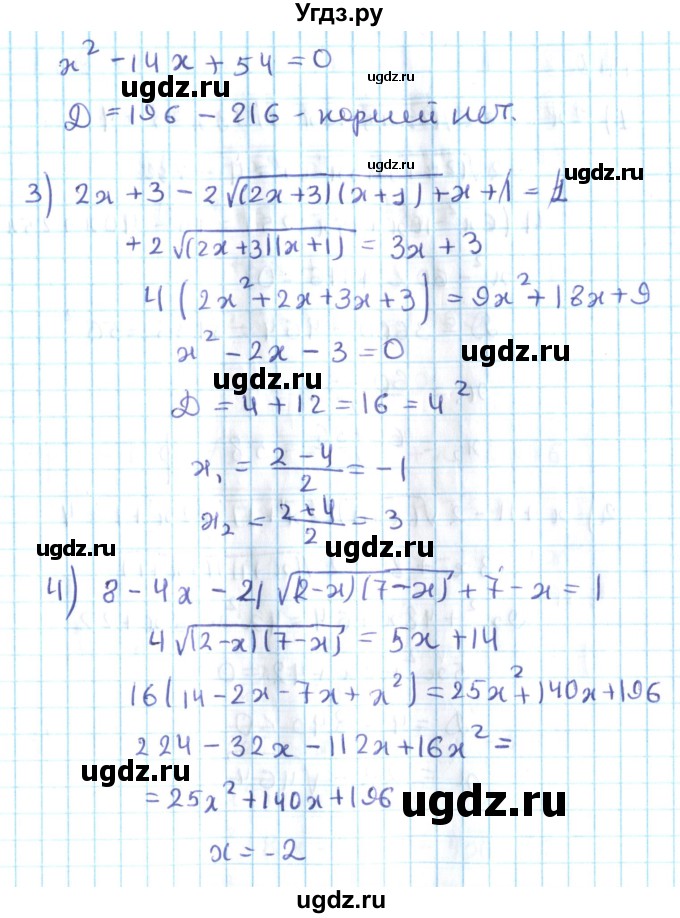 Угдз.ру
x² - 14x + 54 = 0
ugdz.ru
ugdz.ru
Д = 196 - 216 - корней нет.
ugdz.ru
ugdz.ru
3) 2x + 3 - 2√(2x+3)(x+1) + x + 1 = 1
+ 2√(2x+3)(x+1) = 3x + 3
4(2x² + 2x + 3x + 3) = 9x² + 18x + 9
x² - 2x - 3 = 0
ugdz.ru
ugdz.ru
Д = 4 + 12 = 16 = 4²
x₁ = (2 - 4)/2 = -1
x₂ = (2 + 4)/2 = 3
ugdz.ru
ugdz.ru
4) 8 - 4x - 2√(2-x)(7-x) + 7 - x = 1
4√(2-x)(7-x) = 5x + 14
16(14 - 2x - 7x + x²) = 25x² + 140x + 196
224 - 32x - 112x + 16x² =
ugdz.ru
= 25x² + 140x + 196
ugdz.ru
x = -2
ugdz.ru